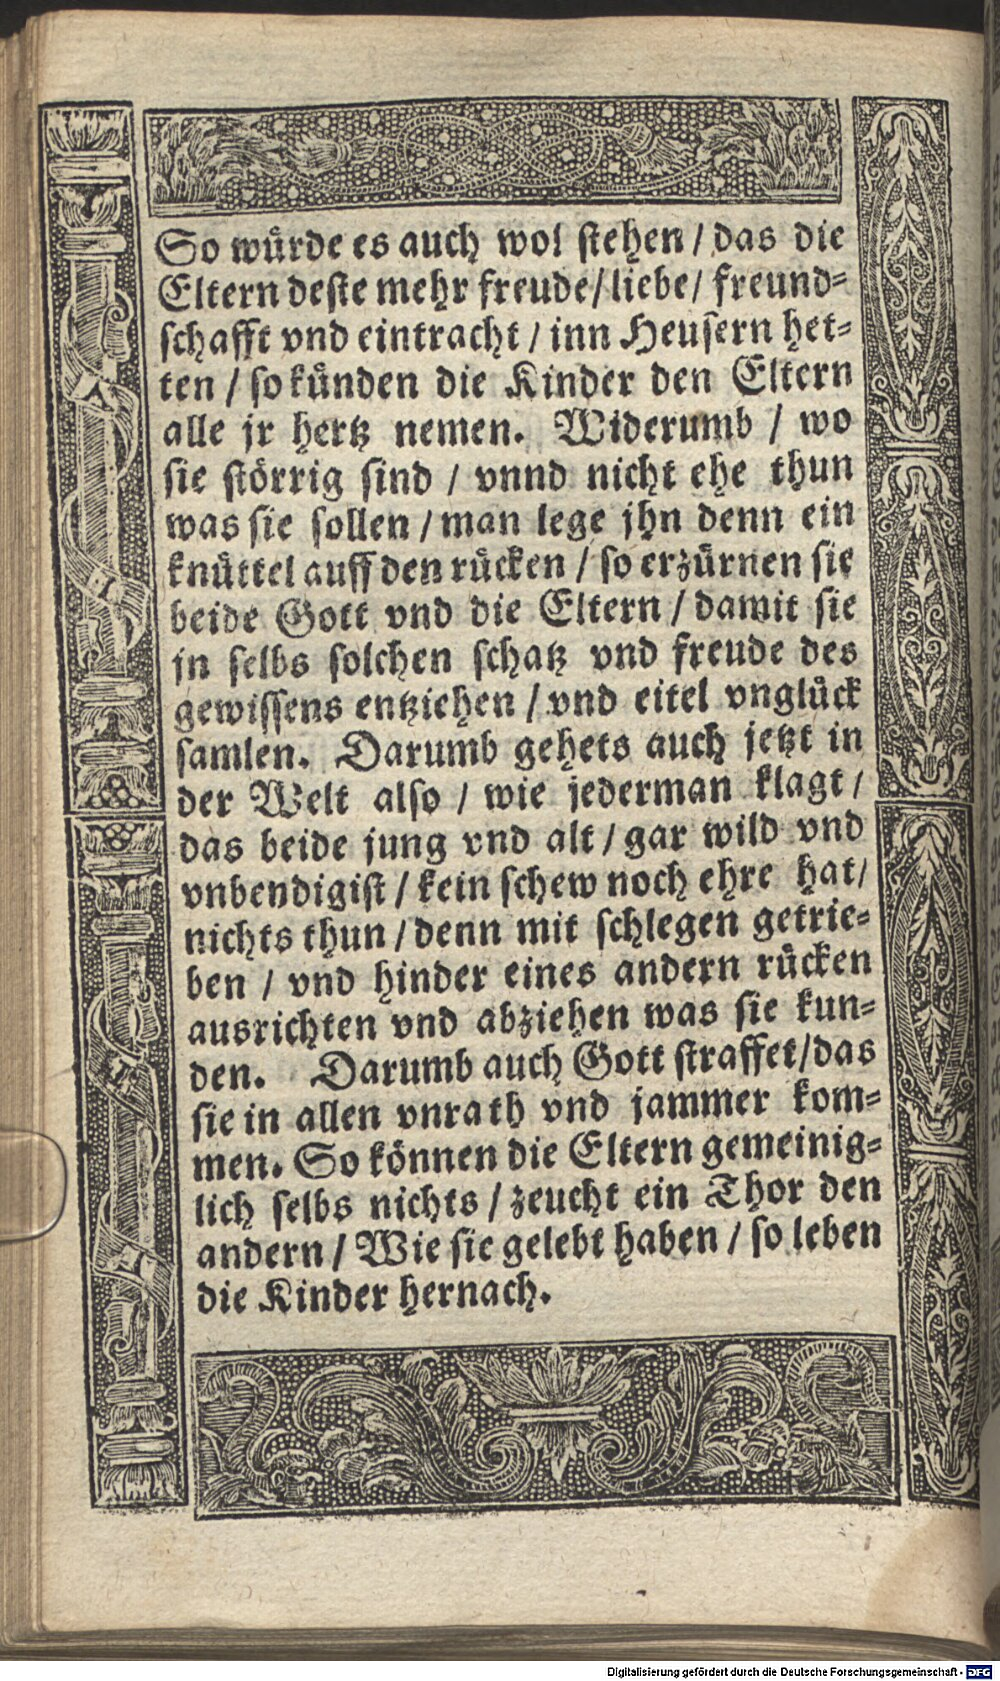 So würde es auch wol stehen / das die
Eltern deste mehr freude / liebe / freund-
schafft vnd eintracht / inn Heusern het-
ten / so künden die Kinder den Eltern
alle jr hertz nemen. Widerumb / wo
sie störrig sind / vnnd nicht ehe thun
was sie sollen / man lege jhn denn ein
knüttel auff den rücken / so erzürnen sie
beide Gott vnd die Eltern / damit sie
jn selbs solchen schatz vnd freude des
gewissens entziehen / vnd eitel vnglück
samlen. Darumb gehets auch jetzt in
der Welt also / wie jederman klagt /
das beide jung vnd alt / gar wild vnd
vnbendig ist / kein schew noch ehre hat /
nichts thun / denn mit schlegen getrie-
ben / vnd hinder eines andern rücken
ausrichten vnd abziehen was sie kun-
den. Darumb auch Gott straffet / das
sie in allen vnrath vnd jammer kom-
men. So können die Eltern gemeinig-
lich selbs nichts / zeucht ein Thor den
andern / Wie sie gelebt haben / so leben
die Kinder hernach.
Digitalisierung gefördert durch die Deutsche Forschungsgemeinschaft - DFG